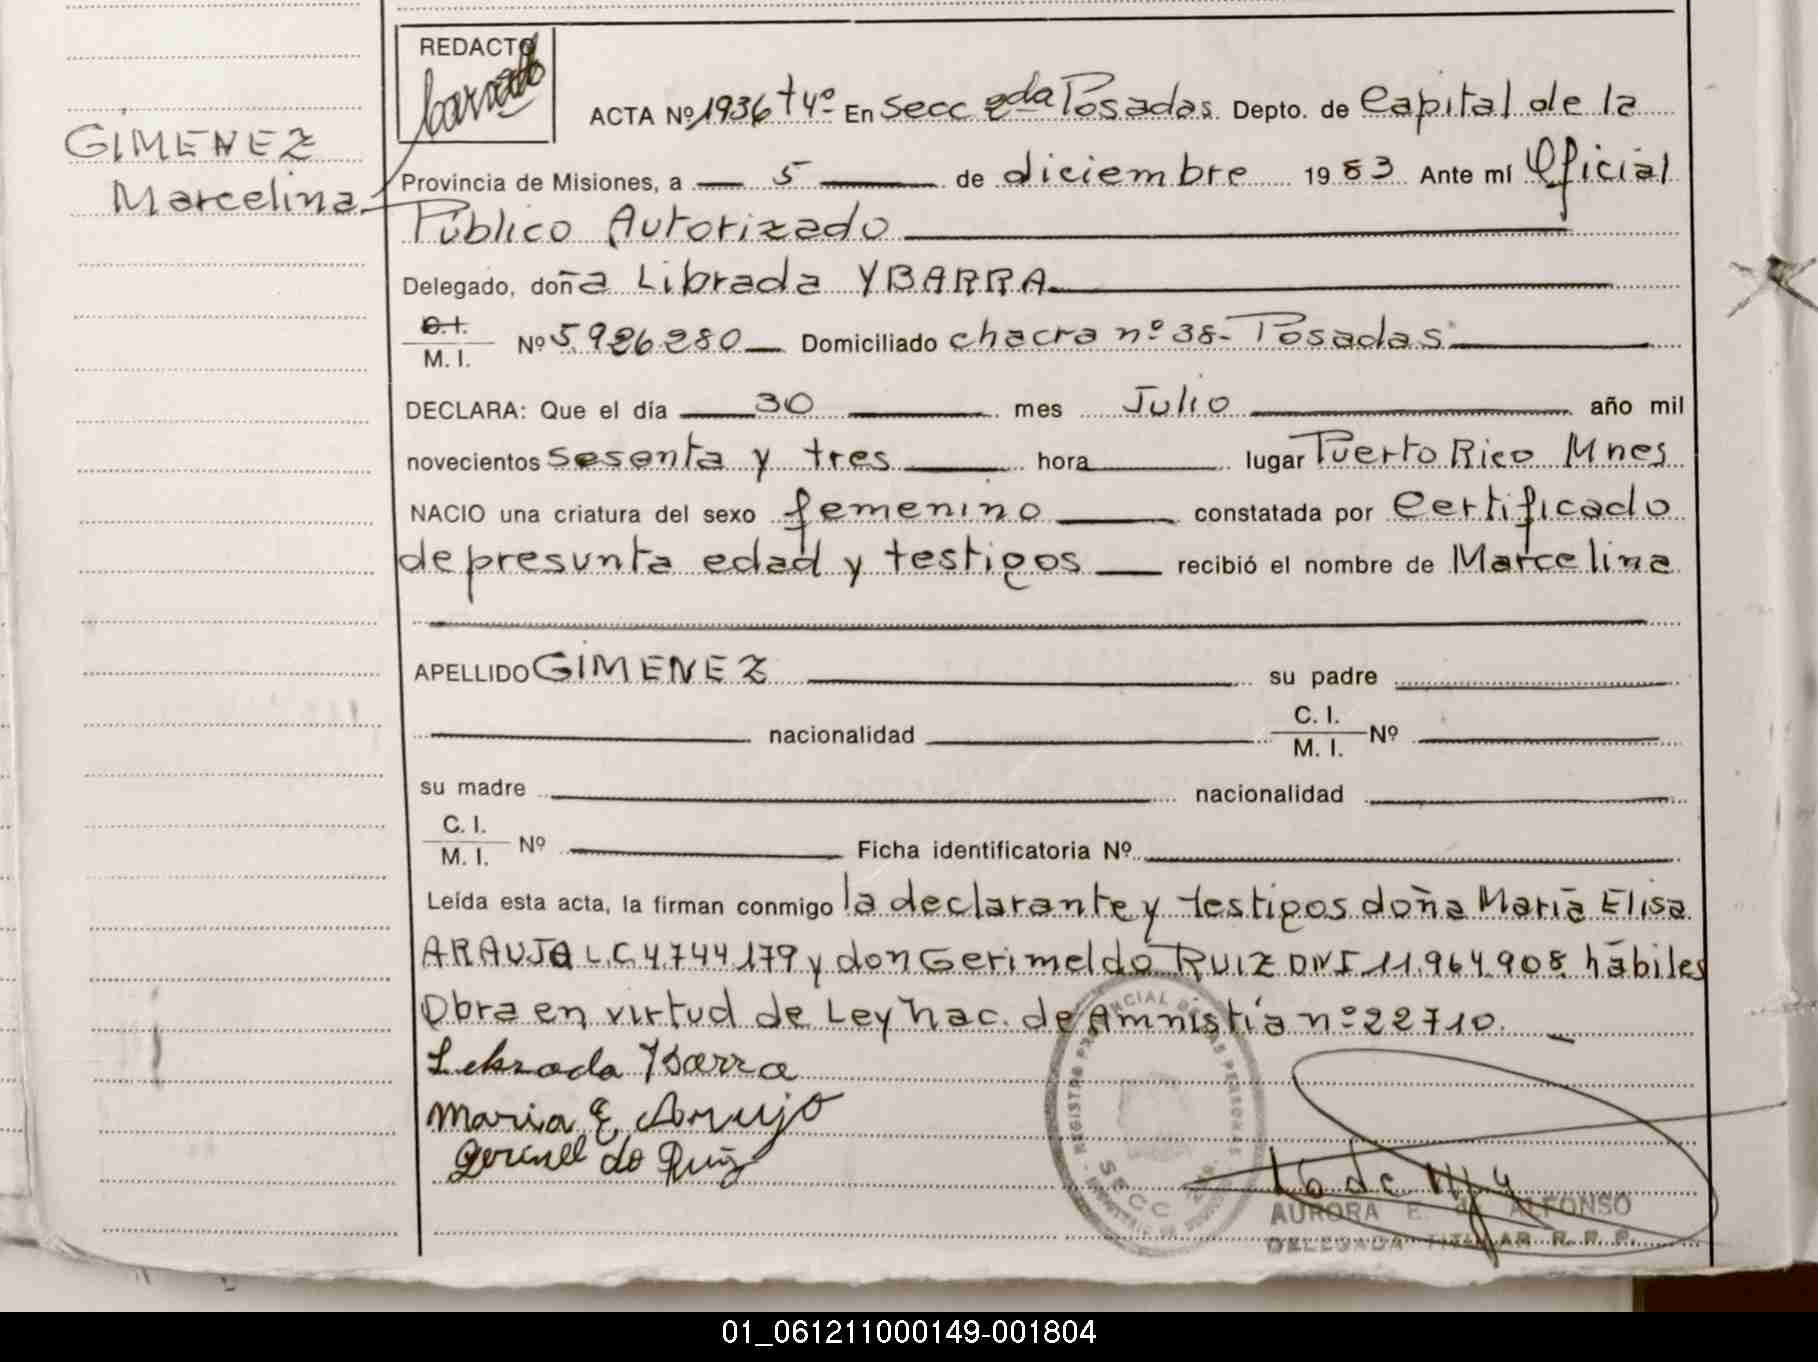 REDACTO
GIMENEZ
Marcelina
ACTA Nº 1936 tº 4º En Secc 2da Posadas Depto. de Capital de la
Provincia de Misiones, a 5 de diciembre 1983 Ante mí Oficial
Público Autorizado
Delegado, doña Librada YBARRA
C.I.
M. I. Nº 5.926.280 Domiciliado chacra nº 38- Posadas
DECLARA: Que el día 30 mes Julio año mil
novecientos sesenta y tres hora lugar Puerto Rico Mnes
NACIO una criatura del sexo femenino constatada por Certificado
de presunta edad y testigos recibió el nombre de Marcelina
APELLIDO GIMENEZ su padre
nacionalidad C. I.
M. I. Nº
su madre nacionalidad
C. I.
M. I. Nº Ficha identificatoria Nº
Leída esta acta, la firman conmigo la declarante y testigos doña María Elisa
ARAUJO L.C 4.744.179 y don Gerimeldo RUIZ DNI 11.964.908 hábiles
Obra en virtud de Ley nac. de Amnistía nº 22710.
Librada Ybarra
Maria E Araujo
Gerimeldo Ruiz
REGISTRO PROVINCIAL DE LAS PERSONAS
SECC
AURORA E. de ALFONSO
DELEGADA TITULAR R. P. P.
01_061211000149-001804